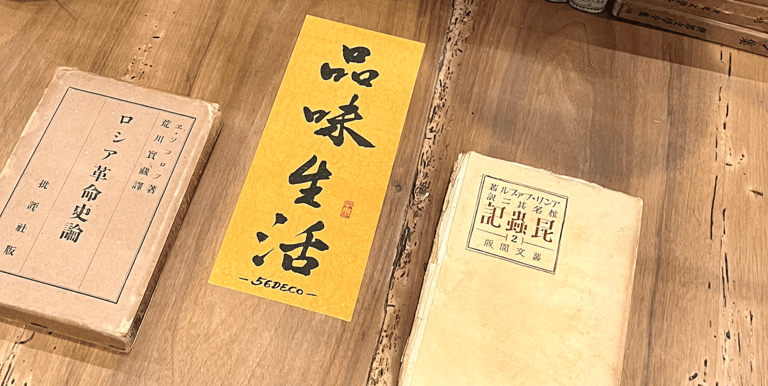 エ・ソコロフ著
荒川實藏譯
ロシア革命史論
批評社版
品味生活
-56DECO-
アンリ・ファブル著
椎名其二訳
昆蟲記
2
叢文閣版